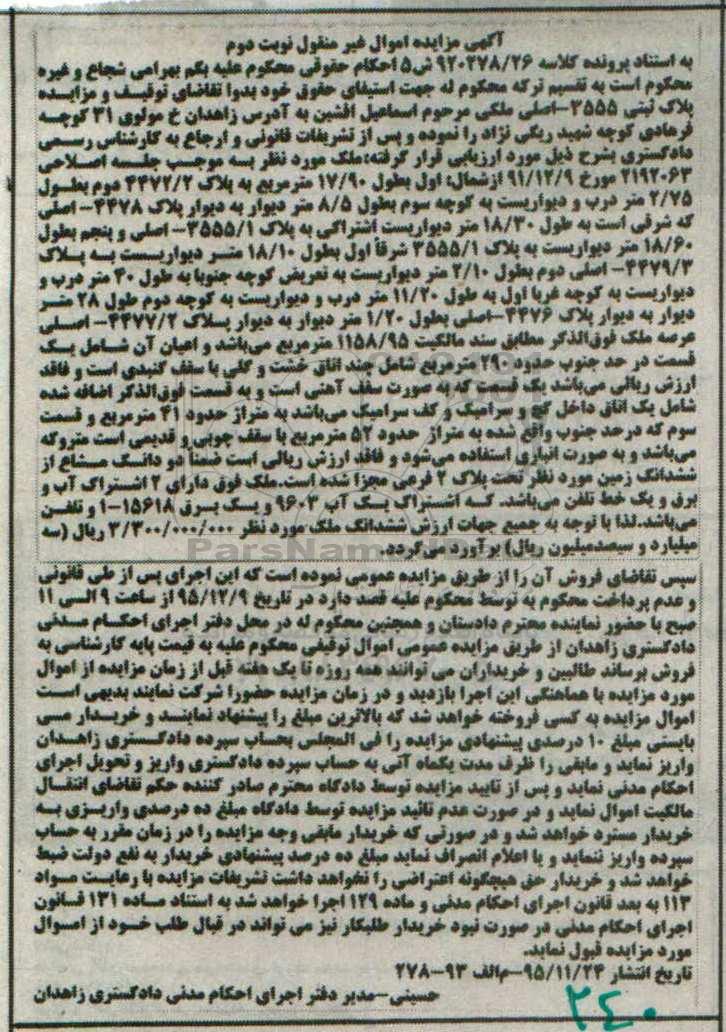 آگهی مزایده اموال غیر منقول نوبت دوم
به استناد پرونده کلاسه ۹۲۰۲۷۸/۲۶ ش۵ احکام حقوقی محکوم علیه بگم بهرامی شجاع و غیره
محکوم است به تقسیم ترکه محکوم له جهت استیفای حقوق خود بدوا تقاضای توقیف و مزایده
پلاک ثبتی ۳۵۵۵-اصلی ملکی مرحوم اسماعیل افشین به آدرس زاهدان خ مولوی ۳۱ کوچه
فرهادی کوچه شهید ریگی نژاد را نموده و پس از تشریفات قانونی و ارجاع به کارشناس رسمی
دادگستری بشرح ذیل مورد ارزیابی قرار گرفته:ملک مورد نظر به موجب جلسه اصلاحی
۲۱۹۲۰۶۳ مورخ ۹۱/۱۲/۹ ازشمال: اول بطول ۱۷/۹۰ مترمربع به پلاک ۴۴۷۲/۲ دوم بطول
۲/۷۵ متر درب و دیواریست به کوچه سوم بطول ۸/۵ متر دیوار به دیوار پلاک ۴۴۷۸- اصلی
که شرقی است به طول ۱۸/۳۰ متر دیواریست اشتراکی به پلاک ۳۵۵۵/۱- اصلی و پنجم بطول
۱۸/۶۰ متر دیواریست به پلاک ۳۵۵۵/۱ شرقاً اول بطول ۱۸/۱۰ متر دیواریست به پلاک
۴۴۷۹/۳- اصلی دوم بطول ۲/۱۰ متر دیواریست به تعریض کوچه جنوبا به طول ۴۰ متر درب و
دیواریست به کوچه غربا اول به طول ۱۱/۲۰ متر درب و دیواریست به کوچه دوم طول ۲۸ متر
دیوار به دیوار پلاک ۴۴۷۶-اصلی بطول ۱/۲۰ متر دیوار به دیوار پلاک ۴۴۷۷/۲- اصلی
عرصه ملک فوق‌الذکر مطابق سند مالکیت ۱۱۵۸/۹۵ مترمربع می‌باشد و اعیان آن شامل یک
قسمت در حد جنوب حدود ۲۹۰ مترمربع شامل چند اتاق خشت و گلی با سقف گنبدی است و فاقد
ارزش ریالی می‌باشد یک قسمت که به صورت سقف آهنی است و به قسمت فوق‌الذکر اضافه شده
شامل یک اتاق داخل گچ و سرامیک و کف سرامیک می‌باشد به متراژ حدود ۴۱ مترمربع و قسمت
سوم که درحد جنوب واقع شده به متراژ حدود ۵۲ مترمربع با سقف چوبی و قدیمی است متروکه
می‌باشد و به صورت انباری استفاده می‌شود و فاقد ارزش ریالی است ضمنا دو دانگ مشاع از
ششدانگ زمین مورد نظر تحت پلاک ۲ فرعی مجزا شده است.ملک فوق دارای ۲ اشتراک آب و
برق و یک خط تلفن می‌باشد. که اشتراک یک آب ۹۶۰۳ و یک برق ۱۵۶۱۸-۱ و تلفن
می‌باشد.لذا با توجه به جمیع جهات ارزش ششدانگ ملک مورد نظر ۳/۳۰۰/۰۰۰/۰۰۰ ریال (سه
میلیارد و سیصدمیلیون ریال) برآورد می‌گردد.
ParsNamadData
سپس تقاضای فروش آن را از طریق مزایده عمومی نموده است که این اجرای پس از طی قانونی
و عدم پرداخت محکوم به توسط محکوم علیه قصد دارد در تاریخ ۹۵/۱۲/۹ از ساعت ۹ الی ۱۱
صبح با حضور نماینده محترم دادستان و همچنین محکوم له در محل دفتر اجرای احکام مدنی
دادگستری زاهدان از طریق مزایده عمومی اموال توقیفی محکوم علیه به قیمت پایه کارشناسی به
فروش برساند طالبین و خریداران می توانند همه روزه تا یک هفته قبل از زمان مزایده از اموال
مورد مزایده با هماهنگی این اجرا بازدید و در زمان مزایده حضورا شرکت نمایند بدیهی است
اموال مزایده به کسی فروخته خواهد شد که بالاترین مبلغ را پیشنهاد نمایند و خریدار می
بایستی مبلغ ۱۰ درصدی پیشنهادی مزایده را فی المجلس بحساب سپرده دادگستری زاهدان
واریز نماید و مابقی را ظرف مدت یکماه آتی به حساب سپرده دادگستری واریز و تحویل اجرای
احکام مدنی نماید و پس از تایید مزایده توسط دادگاه محترم صادر کننده حکم تقاضای انتقال
مالکیت اموال نماید و در صورت عدم تائید مزایده توسط دادگاه مبلغ ده درصدی واریزی به
خریدار مسترد خواهد شد و در صورتی که خریدار مابقی وجه مزایده را در زمان مقرر به حساب
سپرده واریز ننماید و یا اعلام انصراف نماید مبلغ ده درصد پیشنهادی خریدار به نفع دولت ضبط
خواهد شد و خریدار حق هیچگونه اعتراضی را نخواهد داشت تشریفات مزایده با رعایت مواد
۱۱۳ به بعد قانون اجرای احکام مدنی و ماده ۱۲۹ اجرا خواهد شد به استناد ماده ۱۳۱ قانون
اجرای احکام مدنی در صورت نبود خریدار طلبکار نیز می تواند در قبال طلب خود از اموال
مورد مزایده قبول نماید.
تاریخ انتشار ۹۵/۱۱/۲۴-م‌الف ۹۳-۲۷۸
حسینی-مدیر دفتر اجرای احکام مدنی دادگستری زاهدان
۲۴۰